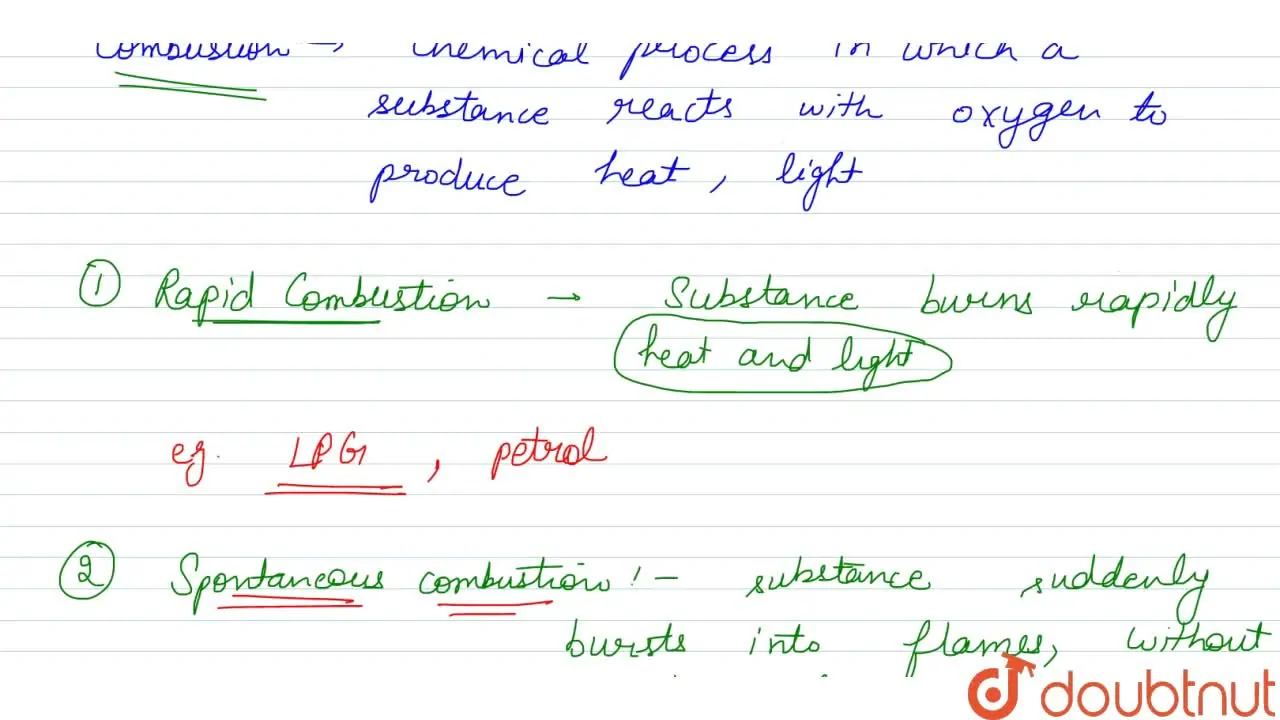 Combustion → Chemical process in which a
substance reacts with oxygen to
produce heat, light
① Rapid Combustion → Substance burns rapidly
heat and light
eg. LPG, petrol
② Spontaneous combustion :- substance suddenly
bursts into flames, without
doubtnut